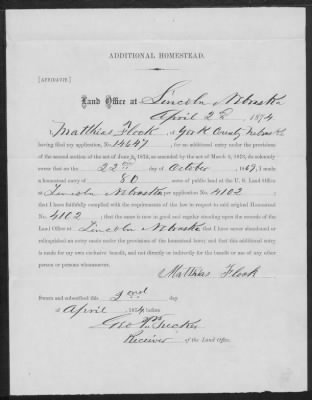 ADDITIONAL HOMESTEAD.
[AFFIDAVIT.]
Land Office at Lincoln Nebraska
April 2nd, 1874
I, Matthias Flock, of York County Nebraska
having filed my application, No. 14647, for an additional entry under the provisions
of the second section of the act of June 8, 1872, as amended by the act of March 3, 1873, do solemnly
swear that on the 22nd day of October, 1867, I made
a homestead entry of 80 acres of public land at the U. S. Land Office
at Lincoln Nebraska per application No. 4102;
that I have faithfully complied with the requirements of the law in respect to said original Homestead
No. 4102; that the same is now in good and regular standing upon the records of the
Land Office at Lincoln Nebraska that I have never abandoned or
relinquished an entry made under the provisions of the homestead laws; and that this additional entry
is made for my own exclusive benefit, and not directly or indirectly for the benefit or use of any other
person or persons whomsoever.
Matthias Flock
Sworn and subscribed this 2nd day
of April, 1874 before
Geo. Tucker
Receiver of the Land Office.